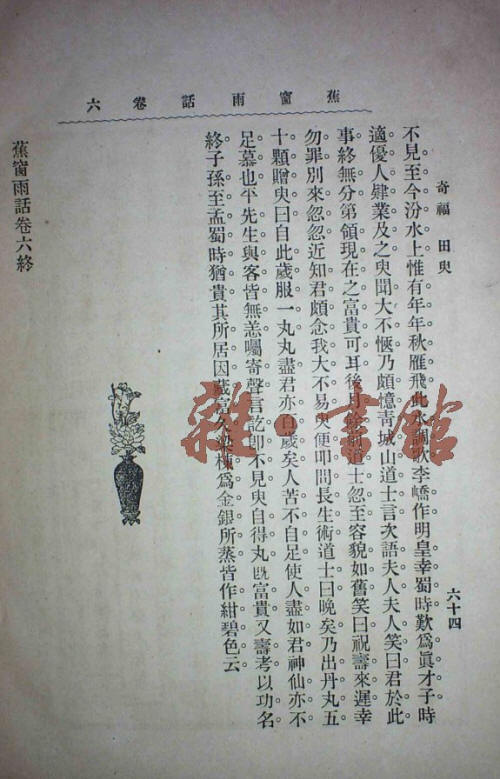 蕉窗雨話卷六
奇福 田叟
六十四
不見至今汾水上惟有年年秋雁飛此水調歌李嶠作明皇幸蜀時歎爲眞才子時
適優人肄業及之叟聞大不愜乃頗憶靑城山道士言次語夫人夫人笑曰君於此
事終無分第領現在之富貴可耳後月餘前道士忽至容貌如舊笑曰祝壽來遲幸
勿罪別來忽忽近知君頗念我大不易叟便叩問長生術道士曰晚矣乃出丹丸五
十顆贈叟曰自此歲服一丸丸盡君亦百歲矣人苦不自足使人盡如君神仙亦不
足慕也平先生與客皆無恙囑寄聲言訖卽不見叟自得丸旣富貴又壽考以功名
終子孫至孟蜀時猶貴其所居因藏富久梁棟爲金銀所蒸皆作紺碧色云
蕉窗雨話卷六終
雜·書館